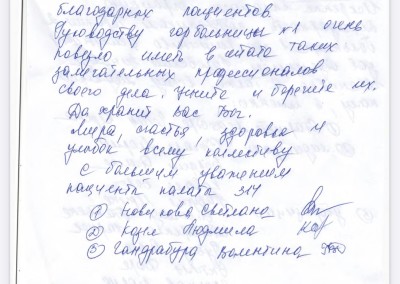 благодарных пациентов.
Руководству горбольницы №1 очень
повезло иметь в штате таких
замечательных профессионалов
своего дела. Цените и берегите их.
Да хранит Вас Бог.
Мира, счастья, здоровья и
улыбок всему коллективу
с большим уважением
пациенты палата 314
① Новикова Светлана
② Людмила
③ Гандрабура Валентина